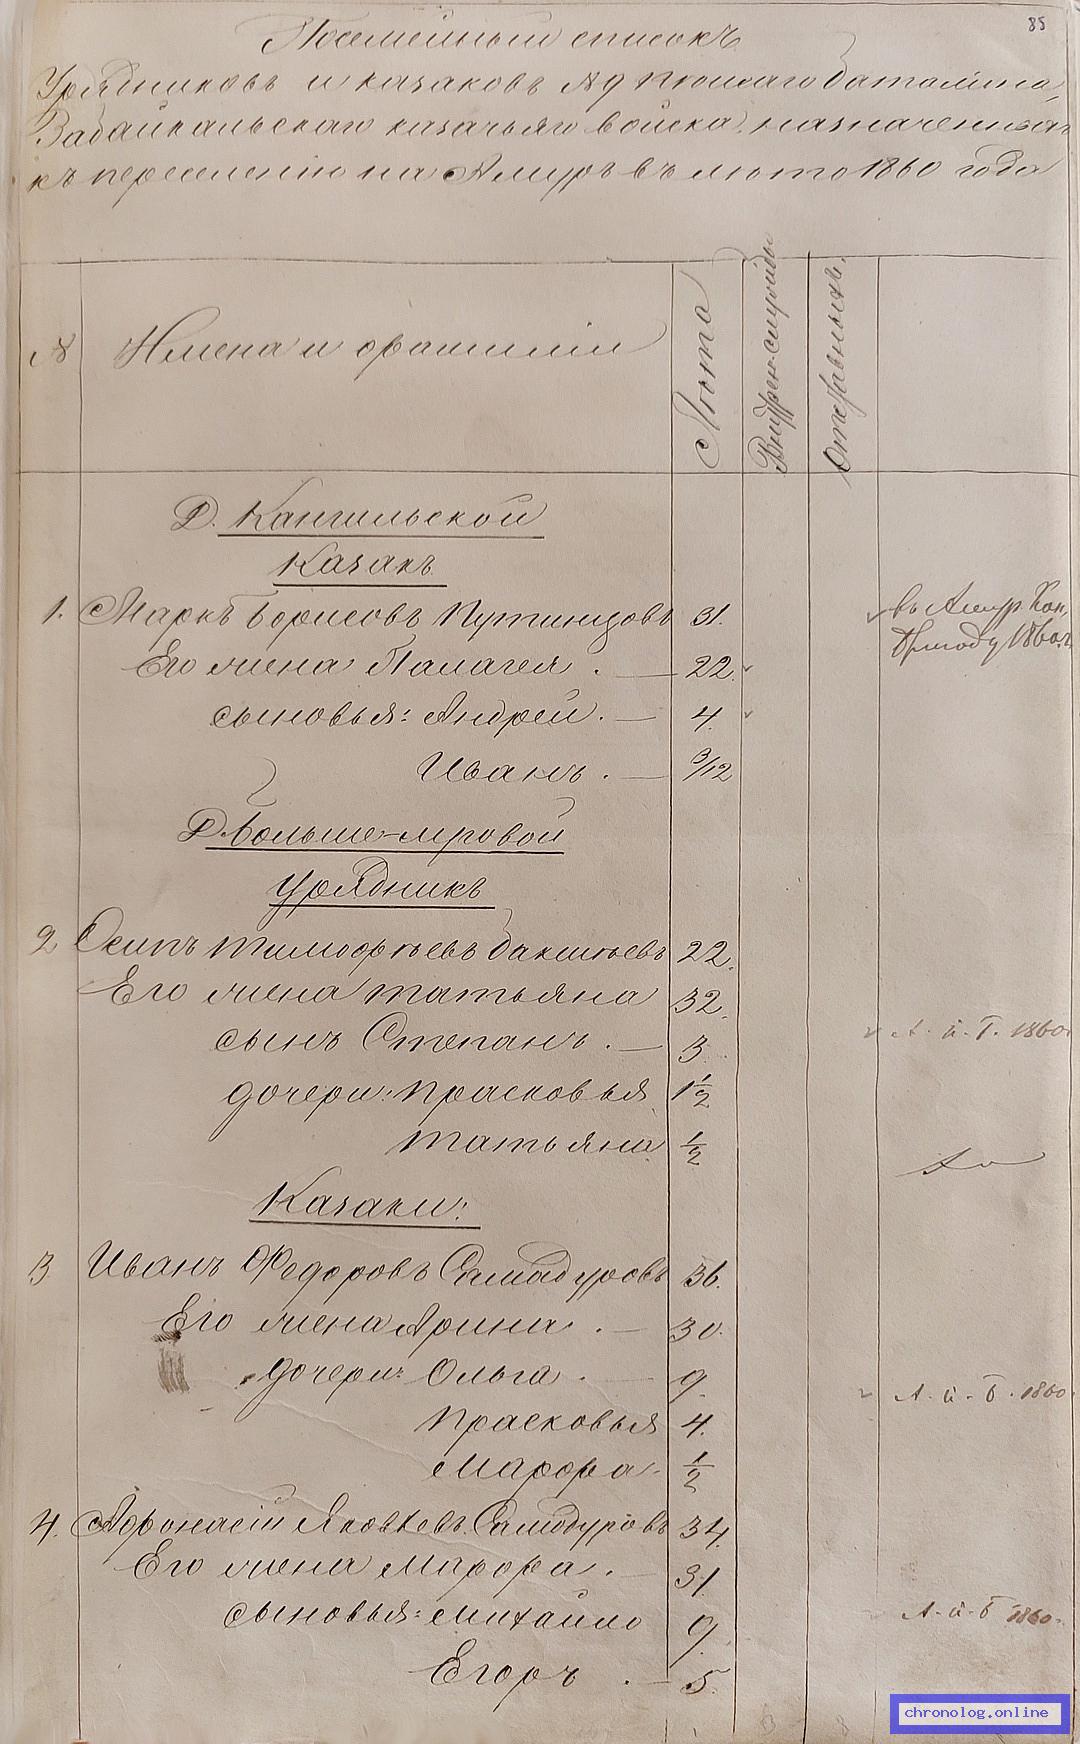 85
Посемейный списокъ
Урядниковъ и казаковъ №9 пюшаго баталiона,
Забайкальскаго казачьяго войска, назначенныхъ
къ переселенiю на Амуръ въ люто 1860 года
№ Имена и фамилiи Люта Внутрен. службы Отставныхъ.
Д. Кангильской
Казакъ
1. Маркъ Борисовъ Путинцовъ 31.
въ Амур. Кон.
Бригаду 1860 г.
Его жена Палагея. — 22.
сыновья: Андрей. — 4.
Иванъ. — 3/12
Д. Больше-
Урядникъ
2 Осипъ Тимофѣевъ Бакшеевъ 22.
Его жена Татьяна 32.
сынъ Степанъ. — 3.
А. й. Б. 1860
дочери: Прасковья 1 1/2
Татьяна 1/2
Казаки:
3 Иванъ Федоровъ Самодуровъ 36.
Его жена Арина. — 30.
дочери: Ольга. — 9.
А. й. Б. 1860
Прасковья 4.
Марфа. 1/2
4. Афонасiй Яковлевъ Самодуровъ 34.
Его жена Марфа. — 31.
сыновья: Михайло 9.
А. й. Б 1860.
Егоръ. — 5.
chronolog.online